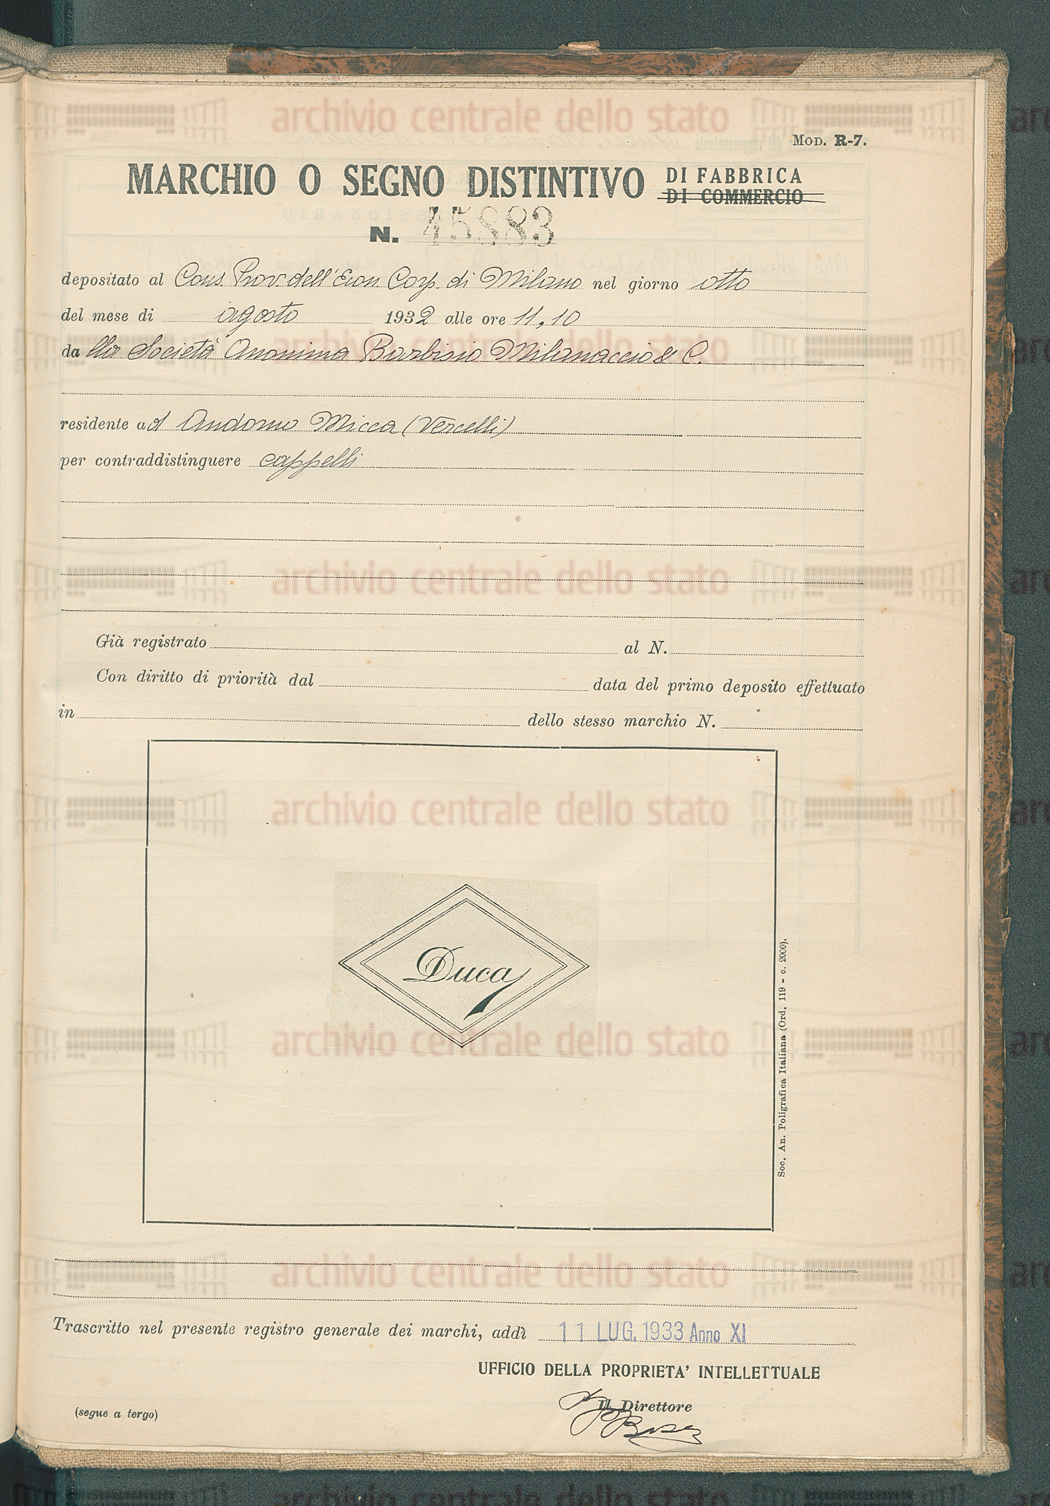 archivio centrale dello stato
Mod. R-7.
MARCHIO O SEGNO DISTINTIVO DI FABBRICA
DI COMMERCIO
N. 45883
depositato al Cons. Prov. dell'Econ. Corp. di Milano nel giorno otto
del mese di agosto 1932 alle ore 11,10
da lla Società Anonima Barbisio Milanaccio & C.
residente ad Andorno Micca (Vercelli)
per contraddistinguere cappelli
archivio centrale dello stato
Già registrato al N.
Con diritto di priorità dal data del primo deposito effettuato
in dello stesso marchio N.
archivio centrale dello stato
Duca
archivio centrale dello stato
Soc. An. Poligrafica Italiana (Ord. 119 - c. 2000).
archivio centrale dello stato
Trascritto nel presente registro generale dei marchi, addì 11 LUG. 1933 Anno XI
UFFICIO DELLA PROPRIETA' INTELLETTUALE
Il Direttore
(segue a tergo)
archivio centrale dello stato